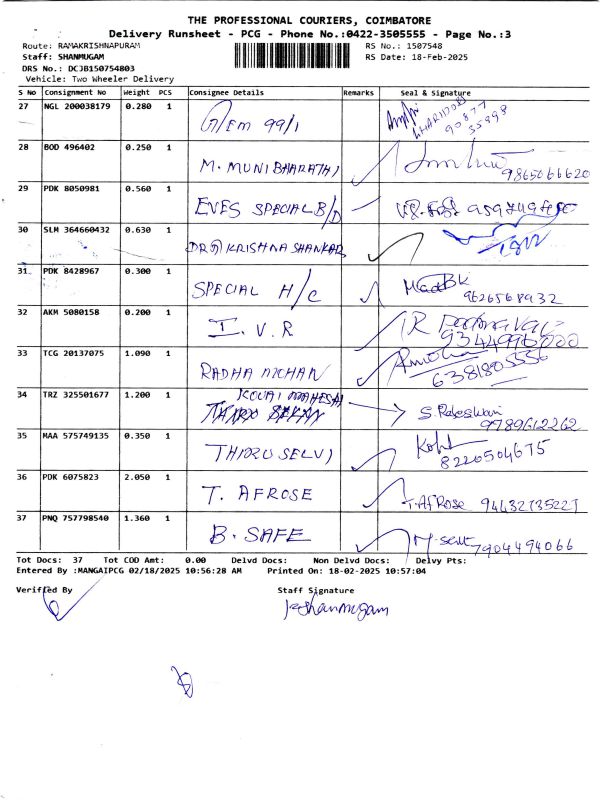 THE PROFESSIONAL COURIERS, COIMBATORE
Delivery Runsheet - PCG - Phone No.:0422-3505555 - Page No.:3
Route: RAMAKRISHNAPURAM RS No.: 1507548
Staff: SHANMUGAM RS Date: 18-Feb-2025
DRS No.: DCJB150754803
Vehicle: Two Wheeler Delivery
S No Consignment No Weight PCS Consignee Details Remarks Seal & Signature
27 NGL 200038179 0.280 1 G/Em 99/1 90877 35998
28 BOD 496402 0.250 1 M. MUNIBHARATHI 9865066620
29 PDK 8050981 0.560 1 EVES SPECIAL B/D
30 SLM 364660432 0.630 1 DR KRISHNA SHANKAR
31 PDK 8428967 0.300 1 SPECIAL H/C 9626568932
32 AKM 5080158 0.200 1 I. V. R
33 TCG 20137075 1.090 1 RADHA MOHAN 6381805556
34 TRZ 325501677 1.200 1 KOVAI MAHESH S. Rajeswari 9789612262
35 MAA 575749135 0.350 1 THIRU SELVI 8220504675
36 PDK 6075823 2.050 1 T. AFROSE T. AfRose
37 PNQ 757798540 1.360 1 B. SAFE 7904494066
Tot Docs: 37 Tot COD Amt: 0.00 Delvd Docs: Non Delvd Docs: Delvy Pts:
Entered By :MANGAIPCG 02/18/2025 10:56:28 AM Printed On: 18-02-2025 10:57:04
Verified By Staff Signature
Shanmugam